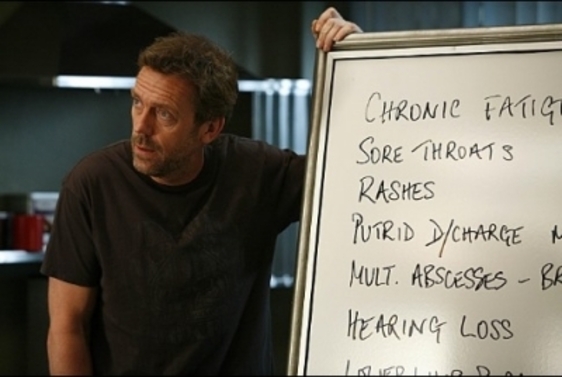 CHRONIC FATIG
SORE THROATS
RASHES
PUTRID D/CHARGE
MULT. ABSCESSES - BR
HEARING LOSS